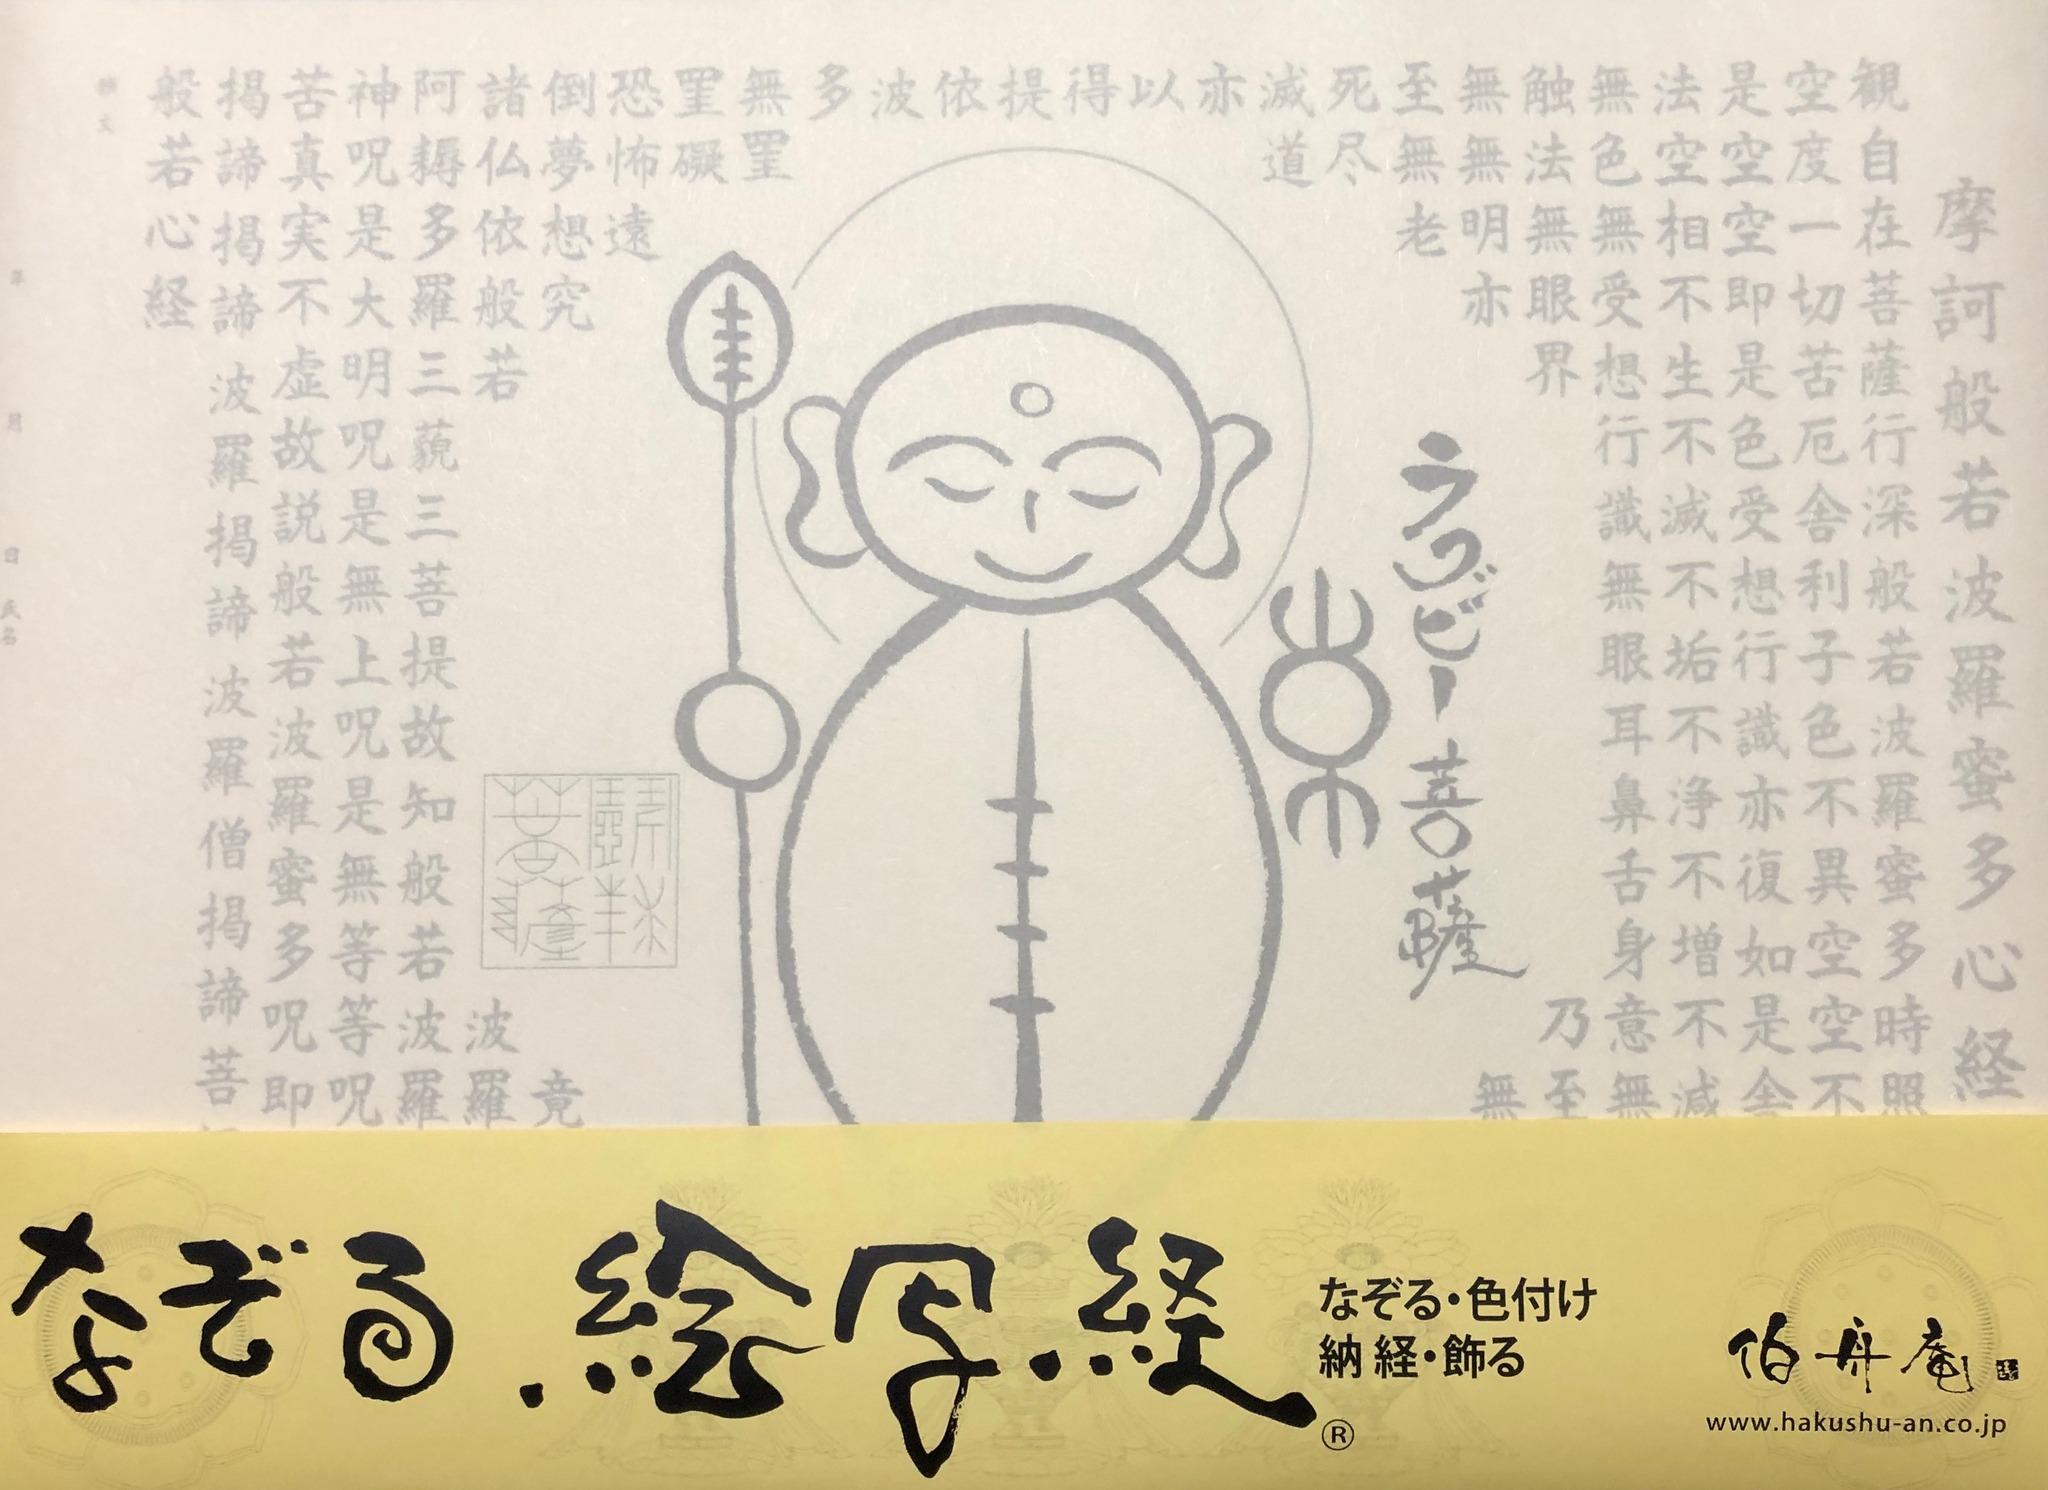 摩訶般若波羅蜜多心経
観自在菩薩行深般若波羅蜜多時照
空度一切苦厄舎利子色不異空空不
是空空即是色受想行識亦復如是舎
法空相不生不滅不垢不浄不増不減
無色無受想行識無眼耳鼻舌身意無
触法無眼界 乃至
無無明亦 無
至無老
死尽
滅道
亦
以
得
提
依
波
多
無罣
罣礙
恐怖遠
倒夢想究 竟
諸仏依般若 波羅
阿耨多羅三藐三菩提故知般若波羅
神呪是大明呪是無上呪是無等等呪
苦真実不虚故説般若波羅蜜多呪即
掲諦掲諦波羅掲諦波羅僧掲諦菩
般若心経
願文
年 月 日 氏名
ラグビー菩薩
なぞる・絵写経®
なぞる・色付け
納経・飾る
伯舟庵
www.hakushu-an.co.jp